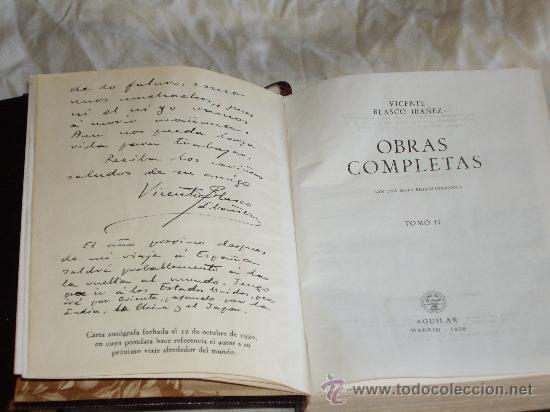 de lo futuro, como
unos muchachos, pues
ni el ni yo vamos
a morir mañana.
Aun nos queda larga
vida para trabajar.
Reciba los cariñosos
saludos de su amigo
Vicente Blasco
Ibáñez
El año proximo despues
de mi viaje á España
saldré probablemente á dar
la vuelta al mundo. Tengo
que ir á los Estados Unidos, pero
iré por Oriente, pasando por la
India, la China y el Japon.
Carta autógrafa fechada el 12 de octubre de 1920,
en cuya postdata hace referencia el autor a su
próximo viaje alrededor del mundo.
VICENTE
BLASCO IBAÑEZ
OBRAS
COMPLETAS
CON UNA NOTA BIOBIBLIOGRAFICA
TOMO II
AGUILAR
MADRID - 1958
© www.todocoleccion.net